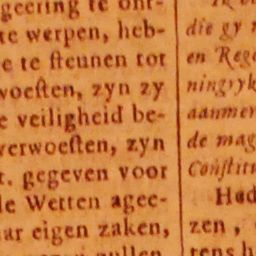 geering te ont-
te werpen, heb-
e te ſteunen tot
woeſten, zyn zy
e veiligheid be-
verwoeſten, zyn
t. gegeven voor
de Wetten agee-
ar eigen zaken,
die gy
en Rege
ningryk
aanmer
de mag
Conſtitu
zen,
tens h